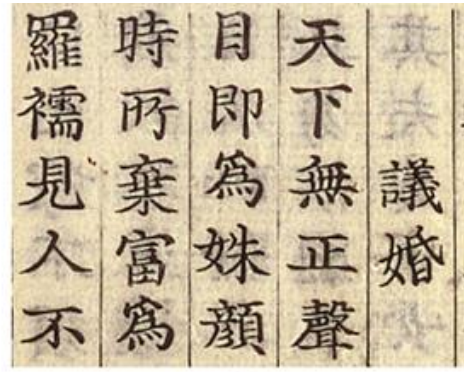 議婚
天下無正聲
目即為姝顔
時所棄富為
羅襦見人不